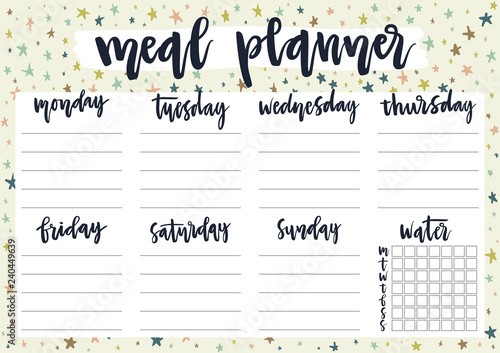 meal planner
monday tuesday wednesday thursday
friday saturday sunday water
m
t
w
t
f
s
s
Adobe Stock | #240449639